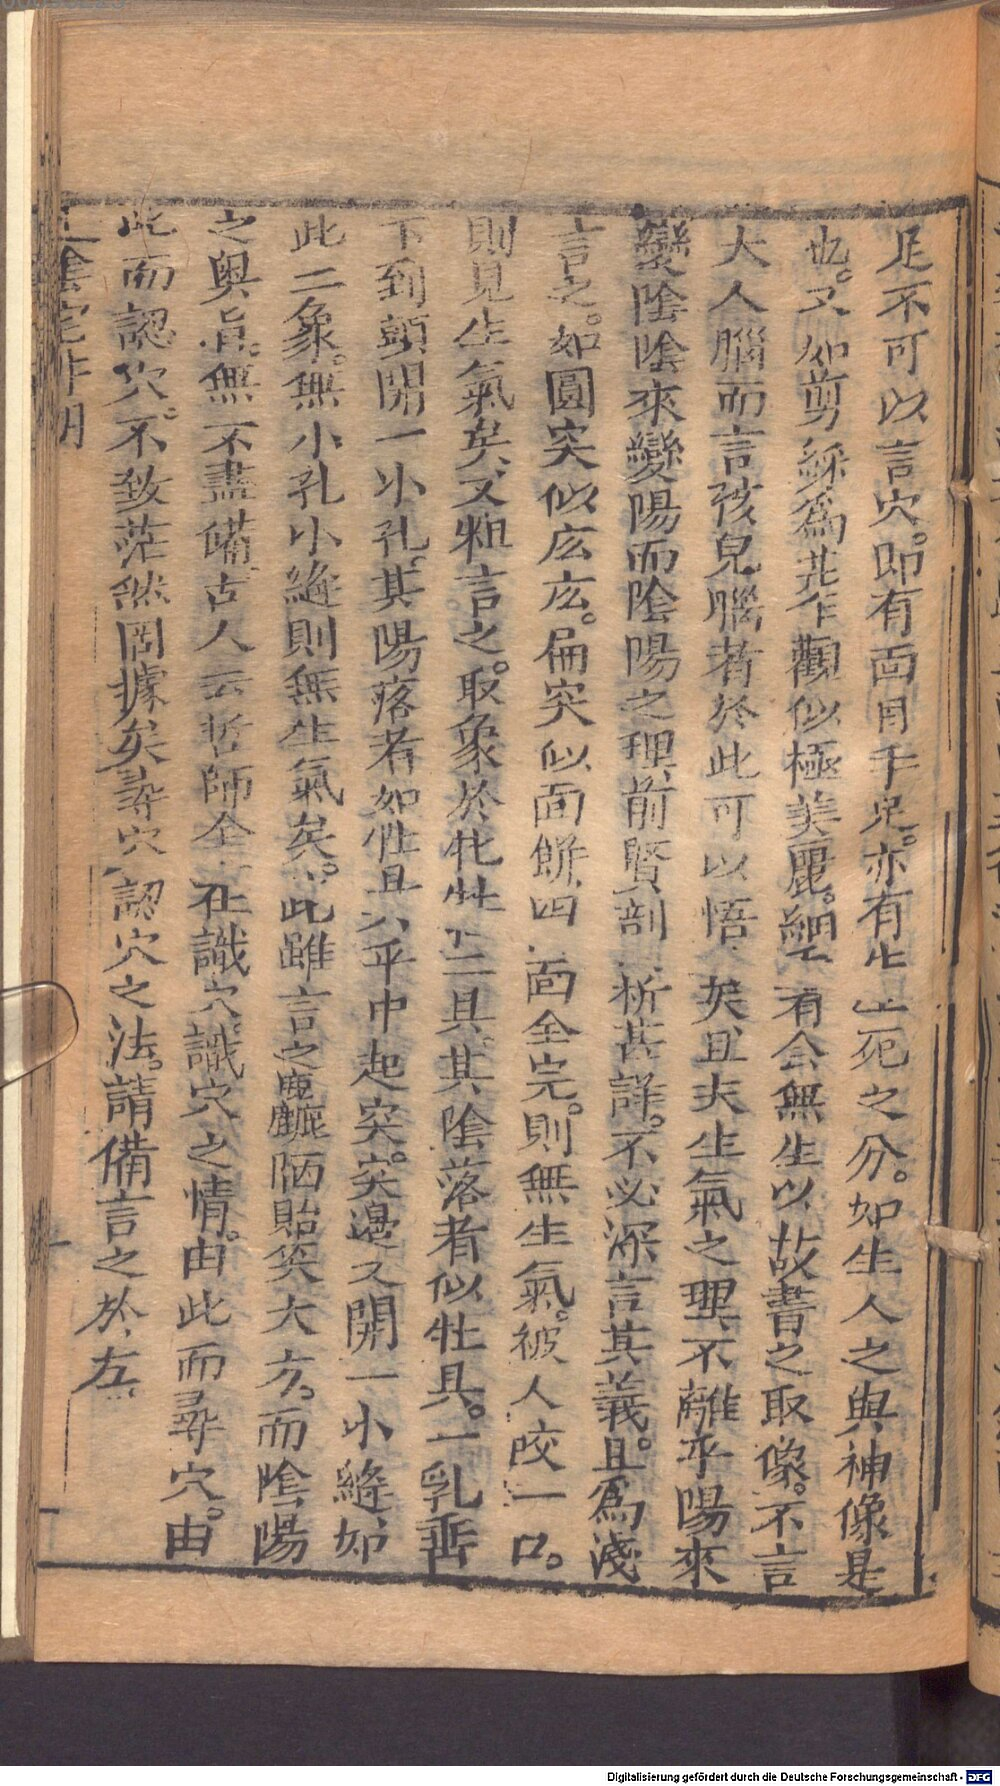 足不可以言穴。卽有面目手足。亦有生死之分。如生人之與神像是
也。又如剪綵爲花作觀似極美麗。細有會無生以故書之取像。不言
大人腦而言孩兒腦者於此可以悟矣且夫生氣之理不離乎陽來
變陰陰來變陽而陰陽之理前賢剖析甚詳。不必深言其義。且爲淺
言之。如圓突似広広。扁突似面餅四面全完。則無生氣。被人咬一口。
則見生氣矣、又粗言之。取象於牝牡二具、其陰落者似牡具。一乳垂
下到頭開一小孔、其陽落者如牝具、平中起突。突邊又開一小縫如
此二象。無小孔小縫則無生氣矣。此雖言之麤陋貽笑大方。而陰陽
之奧旨。無不盡備、古人云哲師全在識穴。識穴之情。由此而尋穴。由
此而認穴。不致茫然罔據矣尋穴認穴之法。請備言之於左
陰宅
Digitalisierung gefördert durch die Deutsche Forschungsgemeinschaft - DFG